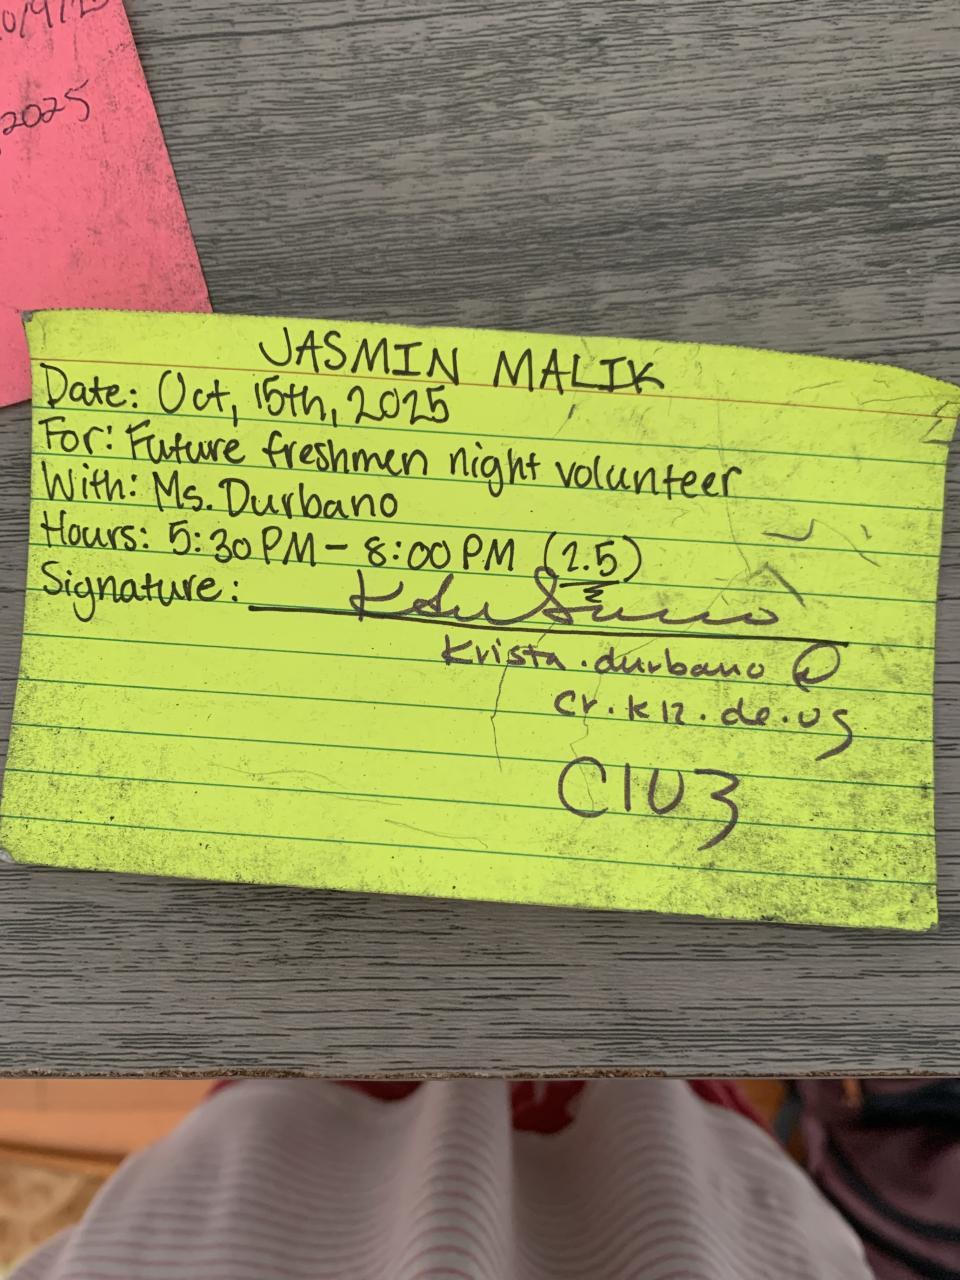 2025
JASMIN MALIK
Date: Oct, 15th, 2025
For: Future freshmen night volunteer
With: Ms. Durbano
Hours: 5:30 PM - 8:00 PM (2.5)
Signature:
krista.durbano @
cr.k12.de.us